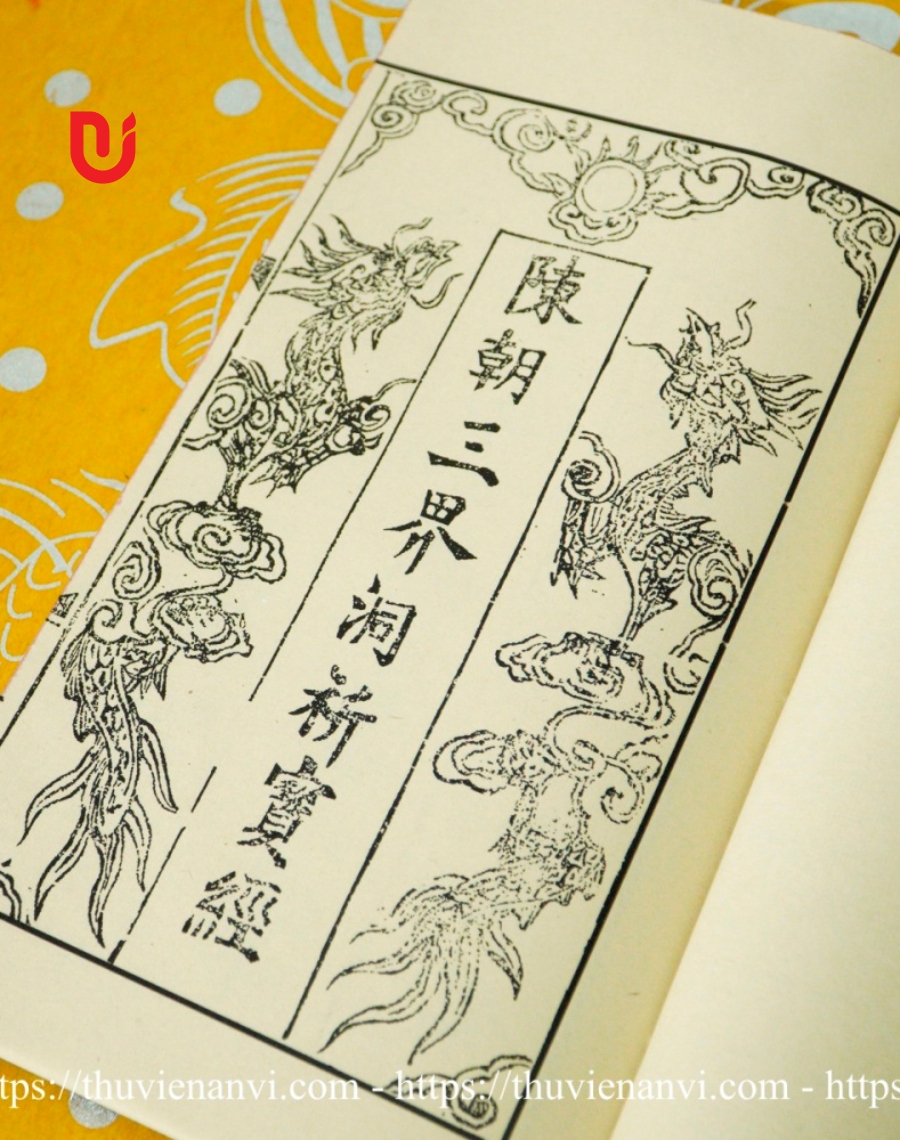 陳朝三界洞祈寶經
https://thuvienanvi.com - https://thuvienanvi.com - https